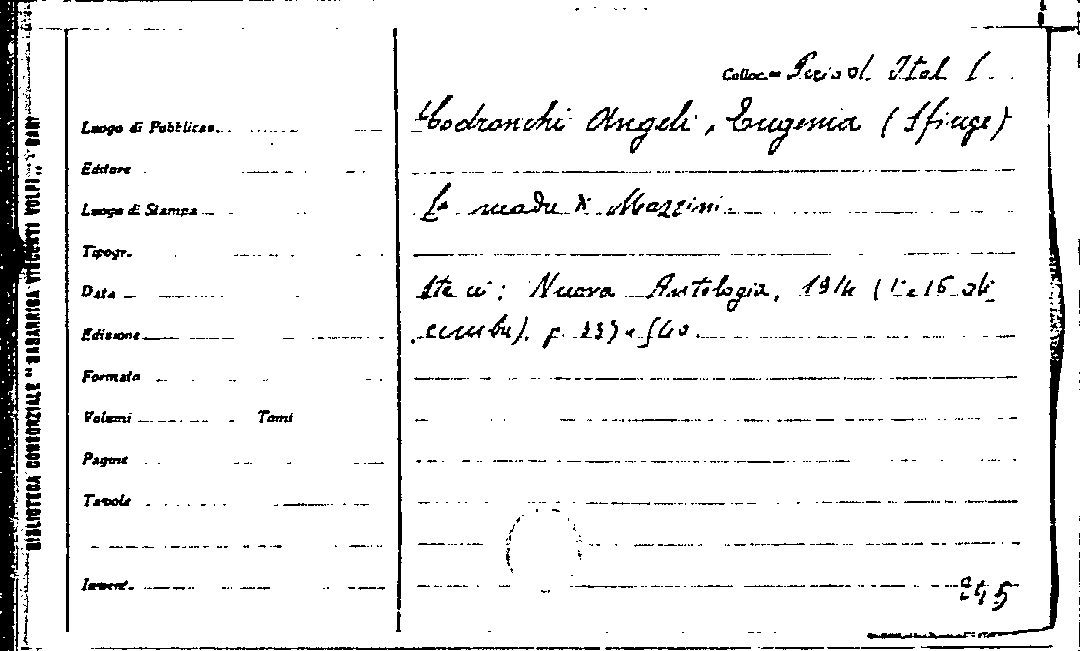 Colloc. Period. Ital. 1.
Luogo di Pubblicaz. Codronchi Angeli, Eugenia (Sfinge)
Editore
Luogo di Stampa La madre di Mazzini.
Tipogr.
Data Sta in: Nuova Antologia, 1914 (1 e 16 di-
Edizione cembre). p.
Formato
Volumi Tomi
Pagine
Tavole
Invent. 245
BIBLIOTECA CONSORZIALE "SAGARRIGA VISCONTI VOLPI" - BARI